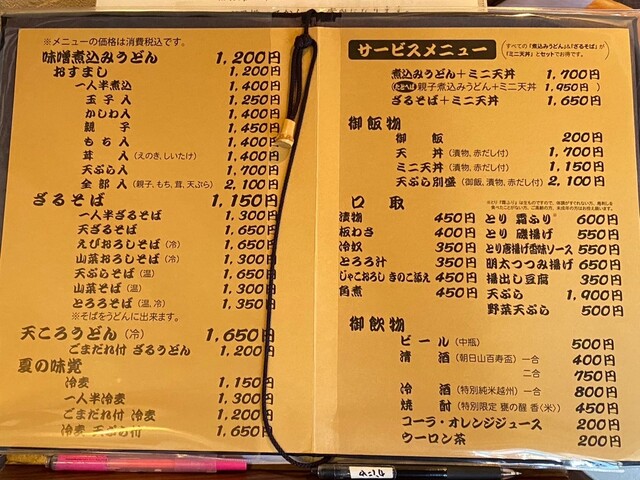 ※メニューの価格は消費税込です。
味噌煮込みうどん 1,200円
おすまし 1,200円
一人半煮込 1,400円
玉子入 1,250円
かしわ入 1,400円
親子 1,450円
もち入 1,400円
茸入(えのき,しいたけ) 1,400円
天ぷら入 1,700円
全部入(親子,もち,茸,天ぷら) 2,100円
ざるそば 1,150円
一人半ざるそば 1,300円
天ざるそば 1,650円
えびおろしそば(冷) 1,650円
山菜おろしそば(冷) 1,300円
天ぷらそば(温) 1,650円
山菜そば(温) 1,300円
とろろそば(温,冷) 1,350円
※そばをうどんに出来ます。
天ころうどん(冷) 1,650円
ごまだれ付 ざるうどん 1,200円
夏の味覚
冷麦 1,150円
一人半冷麦 1,300円
ごまだれ付 冷麦 1,200円
冷麦 天ぷら付 1,650円
サービスメニュー
すべての「煮込みうどん」&「ざるそば」が
「ミニ天丼」とセットでお得です。
煮込みうどん+ミニ天丼 1,700円
親子煮込みうどん+ミニ天丼 1,950円)
ざるそば+ミニ天丼 1,650円
御飯物
御飯 200円
天丼(漬物,赤だし付) 1,700円
ミニ天丼(漬物,赤だし付) 1,150円
天ぷら別盛(御飯,漬物,赤だし付) 2,100円
口取
漬物 450円
板わさ 400円
冷奴 350円
とろろ汁 350円
じゃこおろし きのこ添え 450円
角煮 450円
とり 霜ふり 600円
とり 磯揚げ 550円
とり唐揚げ香味ソース 550円
明太つつみ揚げ 650円
揚出し豆腐 350円
天ぷら 1,900円
野菜天ぷら 500円
御飲物
ビール(中瓶) 500円
清酒(朝日山百寿盃) 一合 400円
二合 750円
冷酒(特別純米越州) 一合 800円
焼酎(特別限定 甕の醒 香〈米〉) 450円
コーラ・オレンジジュース 200円
ウーロン茶 200円